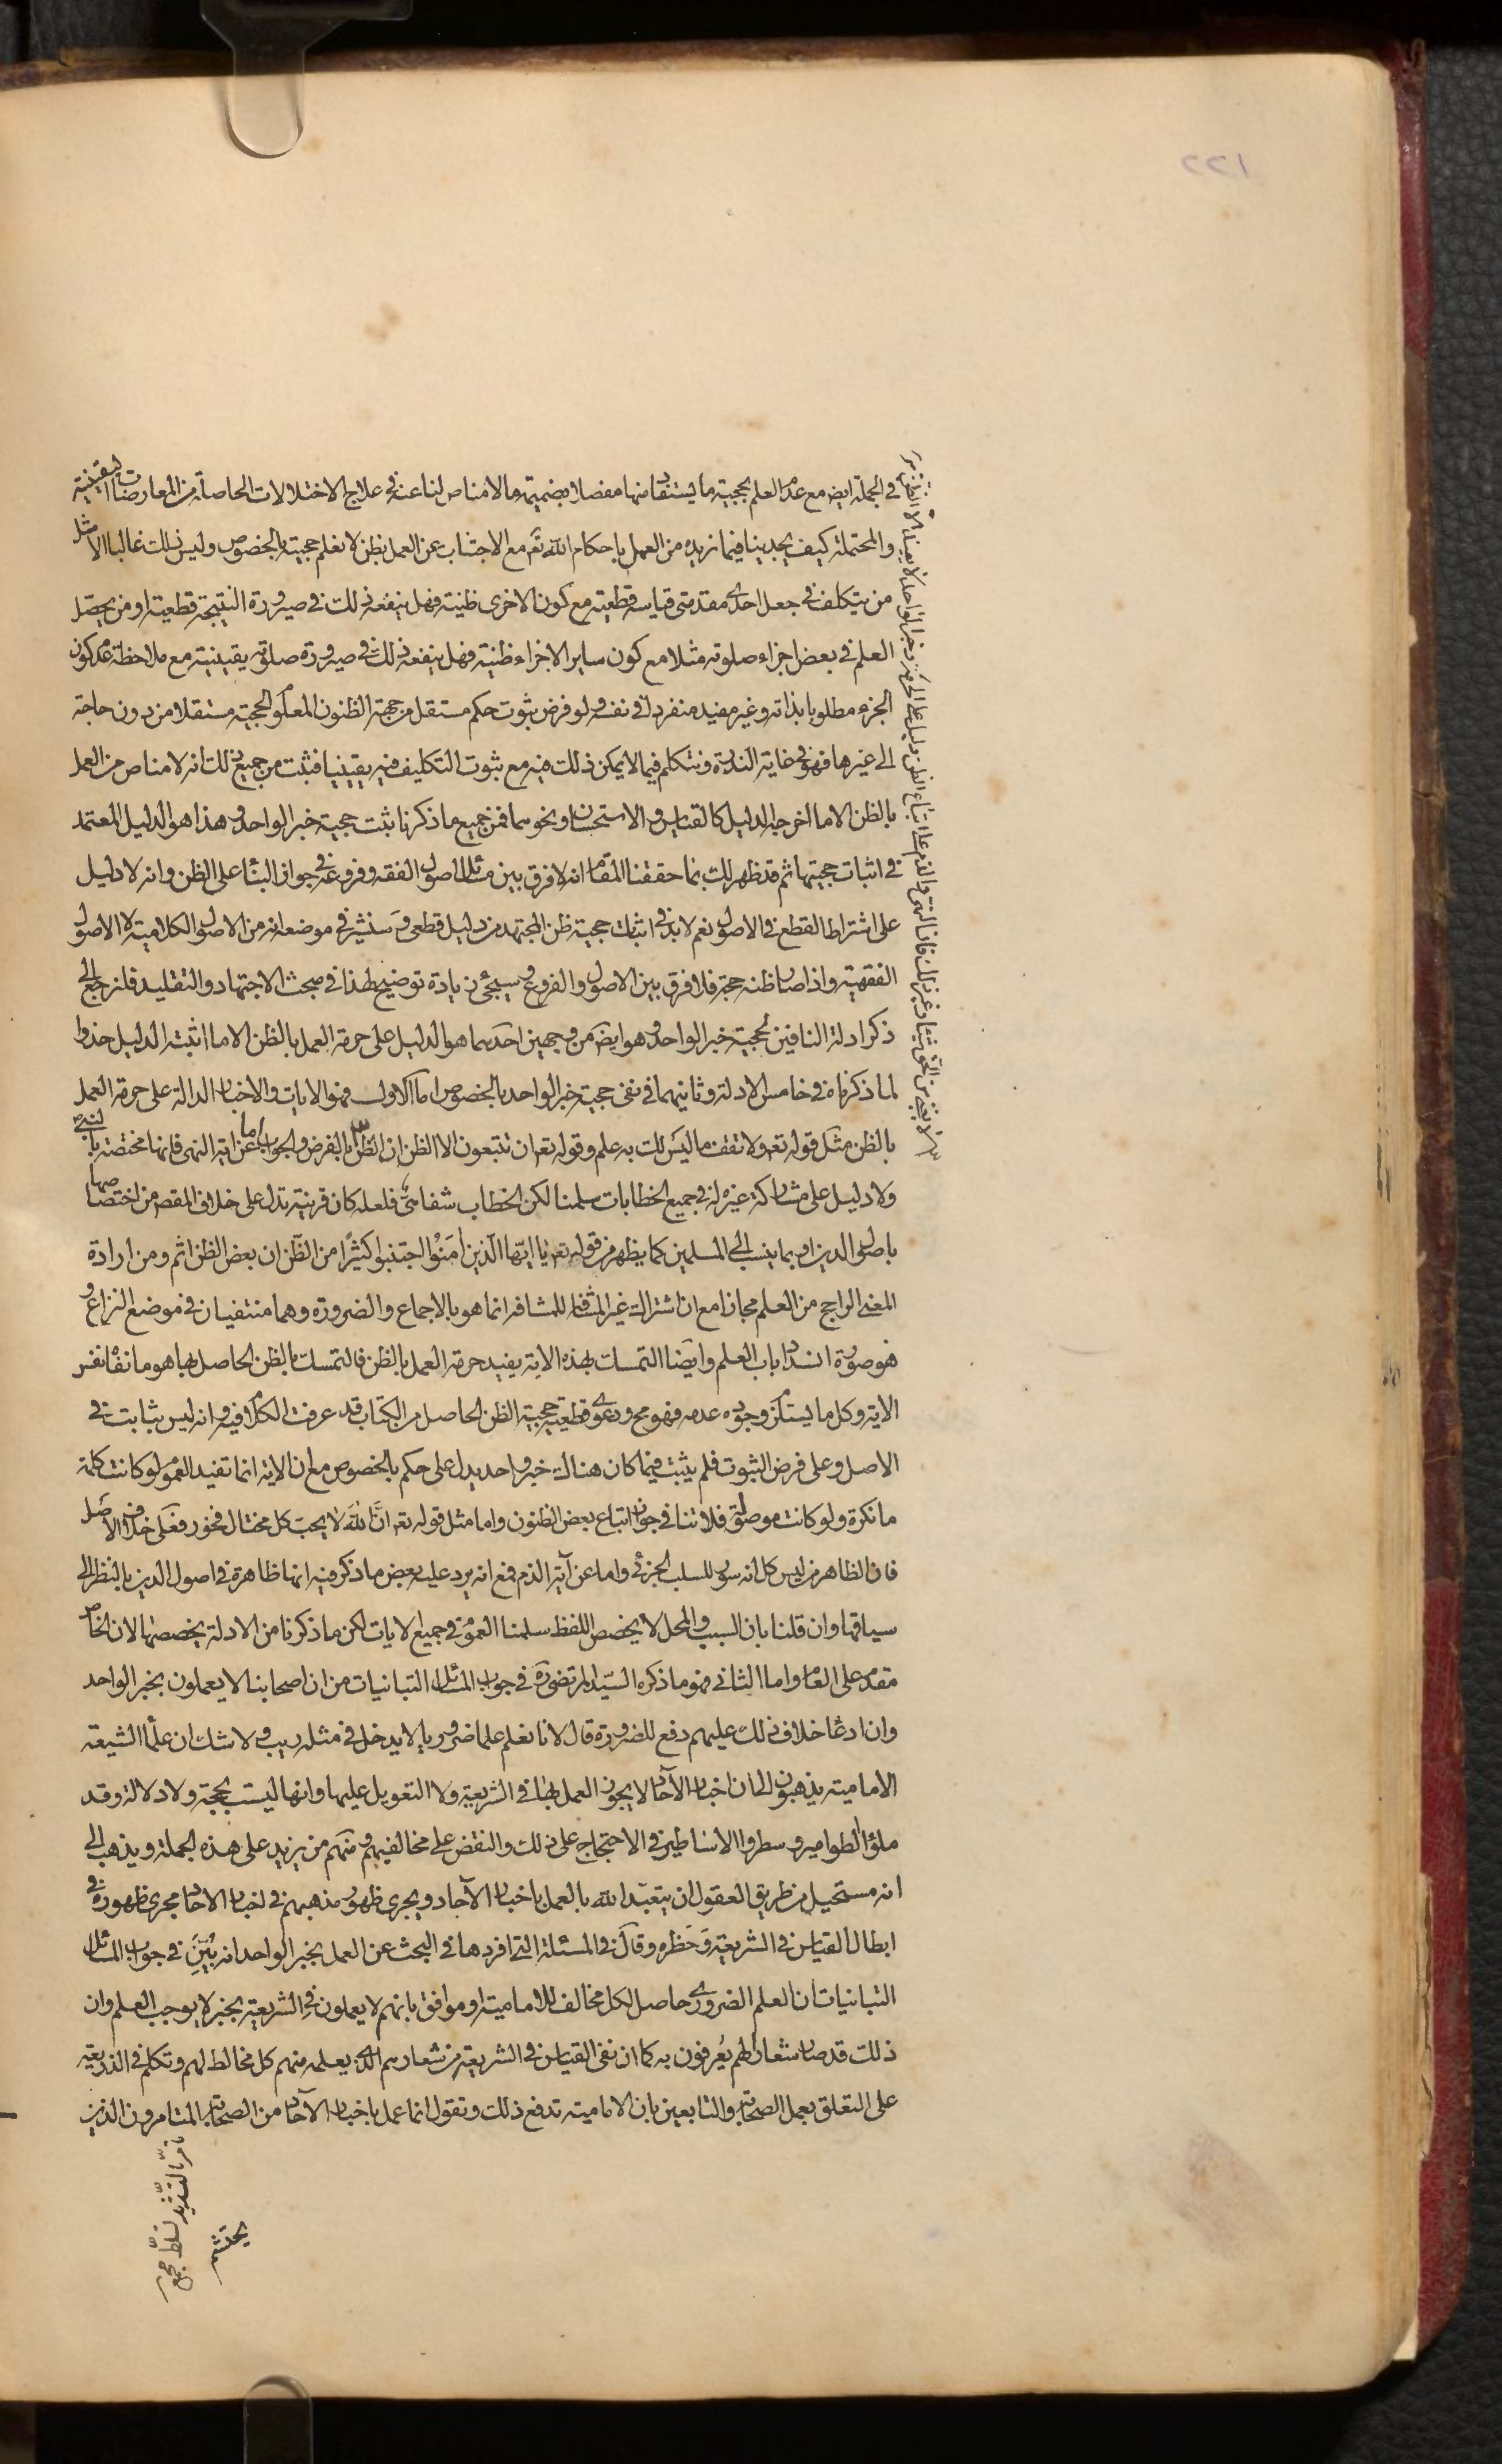 ١٢٢
في الجملة ايض مع عدم العلم بحجية ما يستفاد منها مفصلا بضميمة ما لا مناص لنا عنه في علاج الاختلالات الحاصلة من المعارضات اليقينية
والمحتملة كيف يجدينا فيما نريده من العمل باحكام الله تعالى مع الاجتناب عن العمل بظن لا نعلم حجيته بالخصوص وليس ذلك غالبا الا مثل
من يتكلف في جعل احدى مقدمتى قياسه قطعية مع كون الاخرى ظنية فهل ينفعه ذلك في صيرورة النتيجة قطعية او من يحصل
العلم في بعض اجزاء صلوته مثلا مع كون ساير الاجزاء ظنية فهل ينفعه ذلك في صيرورة صلوته يقينية مع ملاحظة عدم كون
الجزء مطلوبا بذاته وغير مفيد منفردا في نفسه ولو فرض ثبوت حكم مستقل من جهة الظنون المعلوم الحجية مستقلا من دون حاجة
الى غيرها فهو في غاية الندرة ونتكلم فيما لا يمكن ذلك فيه مع ثبوت التكليف فيه يقينيا فثبت من جميع ذلك انه لا مناص من العمل
بالظن الا ما اخرجه الدليل كالقياس والاستحسان ونحوهما فمن جميع ما ذكرنا ثبت حجية خبر الواحد وهذا هو الدليل المعتمد
في اثبات حجيتها ثم قد ظهر لك بما حققنا المقام انه لا فرق بين مسائل اصول الفقه وفروعه في جواز البناء على الظن وانه لا دليل
على اشتراط القطع في الاصول نعم لا بد في اثبات حجية ظن المجتهد من دليل قطعى وسنشير في موضعه انه من الاصول الكلامية لا الاصول
الفقهية واذا صار ظنه حجة فلا فرق بين الاصول والفروع وسيجئ زيادة توضيح لهذا في مبحث الاجتهاد والتقليد فلنرجع الى
ذكر ادلة النافين لحجية خبر الواحد وهو ايض من وجهين احدهما هو الدليل على حرمة العمل بالظن الا ما اثبته الدليل خذوا
لما ذكرناه في خامس الادلة وثانيهما في نفى حجية خبر الواحد بالخصوص اما الاول فهو الايات والاخبار الدالة على حرمة العمل
بالظن مثل قوله تعالى ولا تقف ما ليس لك به علم وقوله تعالى ان تتبعون الا الظن ان الظن بالفرض والجواب اما عن اية النهى فانها مختصة بالنبي
ولا دليل على مشاركة غيره له في جميع الخطابات سلمنا لكن الخطاب شفاهى فلعله كان قرينة تدل على خلاف المقصود من اختصاصها
باصول الدين او بما ينسب الى المسلمين كما يظهر من قوله تعالى يا ايها الذين آمنوا اجتنبوا كثيرا من الظن ان بعض الظن اثم ومن ارادة
المعنى الراجح من العلم مجازا مع ان اشتراك غير المشافه للمشافه انما هو بالاجماع والضرورة وهما منتفيان في موضع النزاع و
هو صورة انسداد باب العلم وايضا التمسك بهذه الاية يفيد حرمة العمل بالظن فالتمسك بالظن الحاصل بها هو مانفاه نفس
الاية وكل ما يستلزم وجوده عدمه فهو مح ودعوى قطعية حجية الظن الحاصل من الكتاب قد عرفت الكلام فيه وانه ليس بثابت في
الاصل وعلى فرض الثبوت فلم يثبت فيما كان هناك خبر واحد يدل على حكم بالخصوص مع ان الاية انما تفيد العموم لو كانت كلمة
ما نكرة ولو كانت موصولة فلا تنافى جواز اتباع بعض الظنون واما مثل قوله تعالى ان الله لا يحب كل مختال فخور فعلى خلاف الاصل
فان الظاهر من ليس كل انه سور للسلب الجزئى واما عن آية الذم فمع انه يرد عليه بعض ما ذكر فيه انها ظاهرة في اصول الدين بالنظر الى
سياقها وان قلنا بان السبب والمحل لا يخصص اللفظ سلمنا العموم في جميع الايات لكن ما ذكرنا من الادلة يخصصها لان الخاص
مقدم على العام واما الثانى فهو ما ذكره السيد المرتضى ره في جواب المسائل التبانيات من ان اصحابنا لا يعملون بخبر الواحد
وان ادعاء خلاف ذلك عليهم دفع للضرورة قال لانا نعلم علما ضروريا لا يدخل في مثله ريب ولا شك ان علماء الشيعة
الامامية يذهبون الى ان اخبار الآحاد لا يجوز العمل بها في الشريعة ولا التعويل عليها وانها ليست بحجة ولا دلالة وقد
ملؤا الطوامير وسطروا الاساطير في الاحتجاج على ذلك والنقض على مخالفيهم ومنهم من يزيد على هذه الجملة ويذهب الى
انه مستحيل من طريق العقول ان يتعبد الله بالعمل باخبار الآحاد ويجرى ظهور مذهبهم في اخبار الآحاد مجرى ظهوره في
ابطال القياس في الشريعة وحظره وقال في المسئلة التى افردها في البحث عن العمل بخبر الواحد انه بين في جواب المسائل
التبانيات ان العلم الضرورى حاصل لكل مخالف للامامية او موافق بانهم لا يعملون في الشريعة بخبر لا يوجب العلم وان
ذلك قد صار شعارا لهم يعرفون به كما ان نفى القياس في الشريعة من شعارهم الذى يعلمه منهم كل مخالط لهم وتكلم في الذريعة
على التعلق بعمل الصحابة والتابعين بان الامامية تدفع ذلك وتقول انما عمل باخبار الآحاد من الصحابة المتامرون الذين
يحتشم